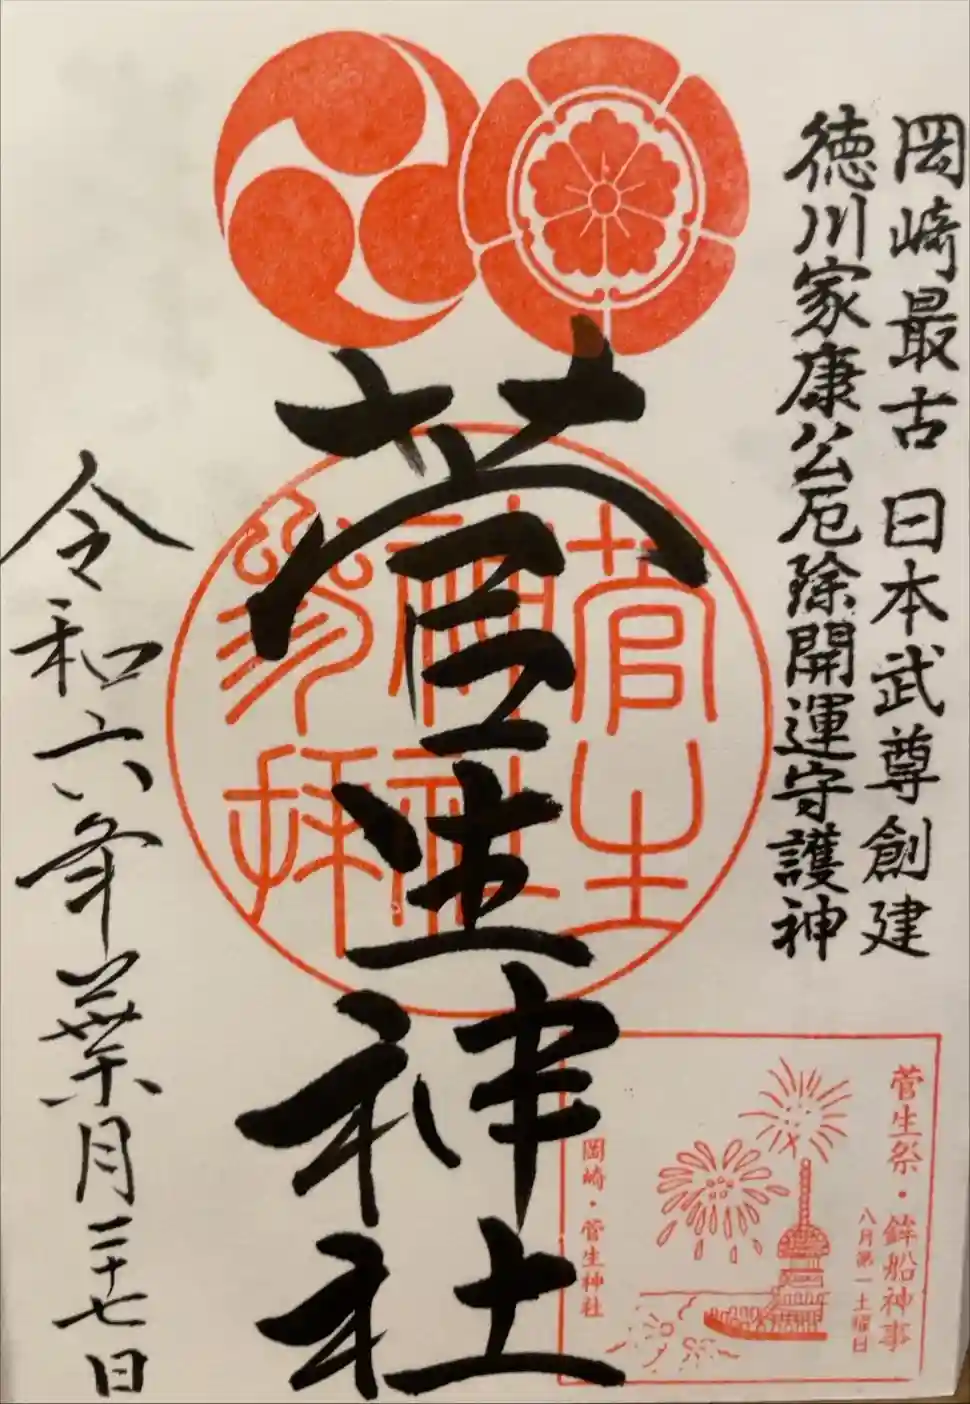 岡崎最古 日本武尊創建
徳川家康公厄除開運守護神
菅生神社
菅生
神社
参拝
令和六年葉月二十七日
菅生祭・鉾船神事
八月第一土曜日
岡崎・菅生神社